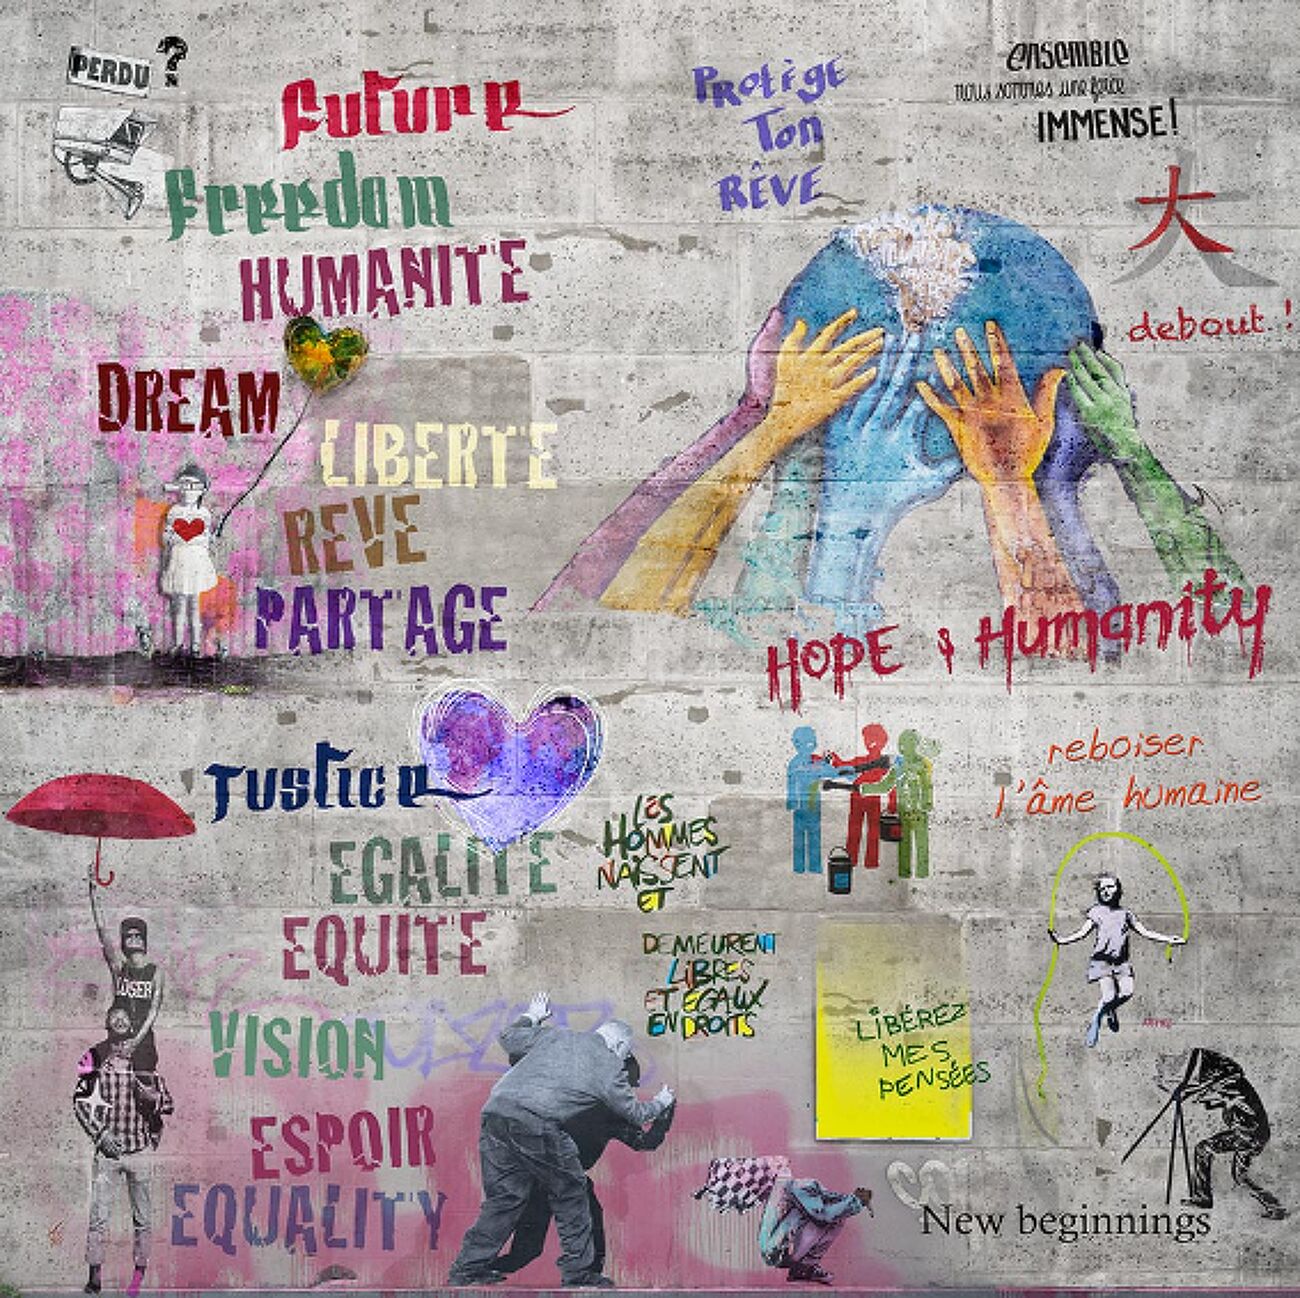 PERDU ?
Future
Freedom
HUMANITE
DREAM
LIBERTE
REVE
PARTAGE
Protège
Ton
RÊVE
ensemble
nous sommes une force
IMMENSE!
大
debout !
HOPE & Humanity
Justice
EGALITE
EQUITE
VISION
ESPOIR
EQUALITY
LOSER
LES
HOMMES
NAISSENT
ET
DEMEURENT
LIBRES
ET EGAUX
EN DROITS
reboiser
l'âme humaine
LIBÉREZ
MES
PENSÉES
New beginnings